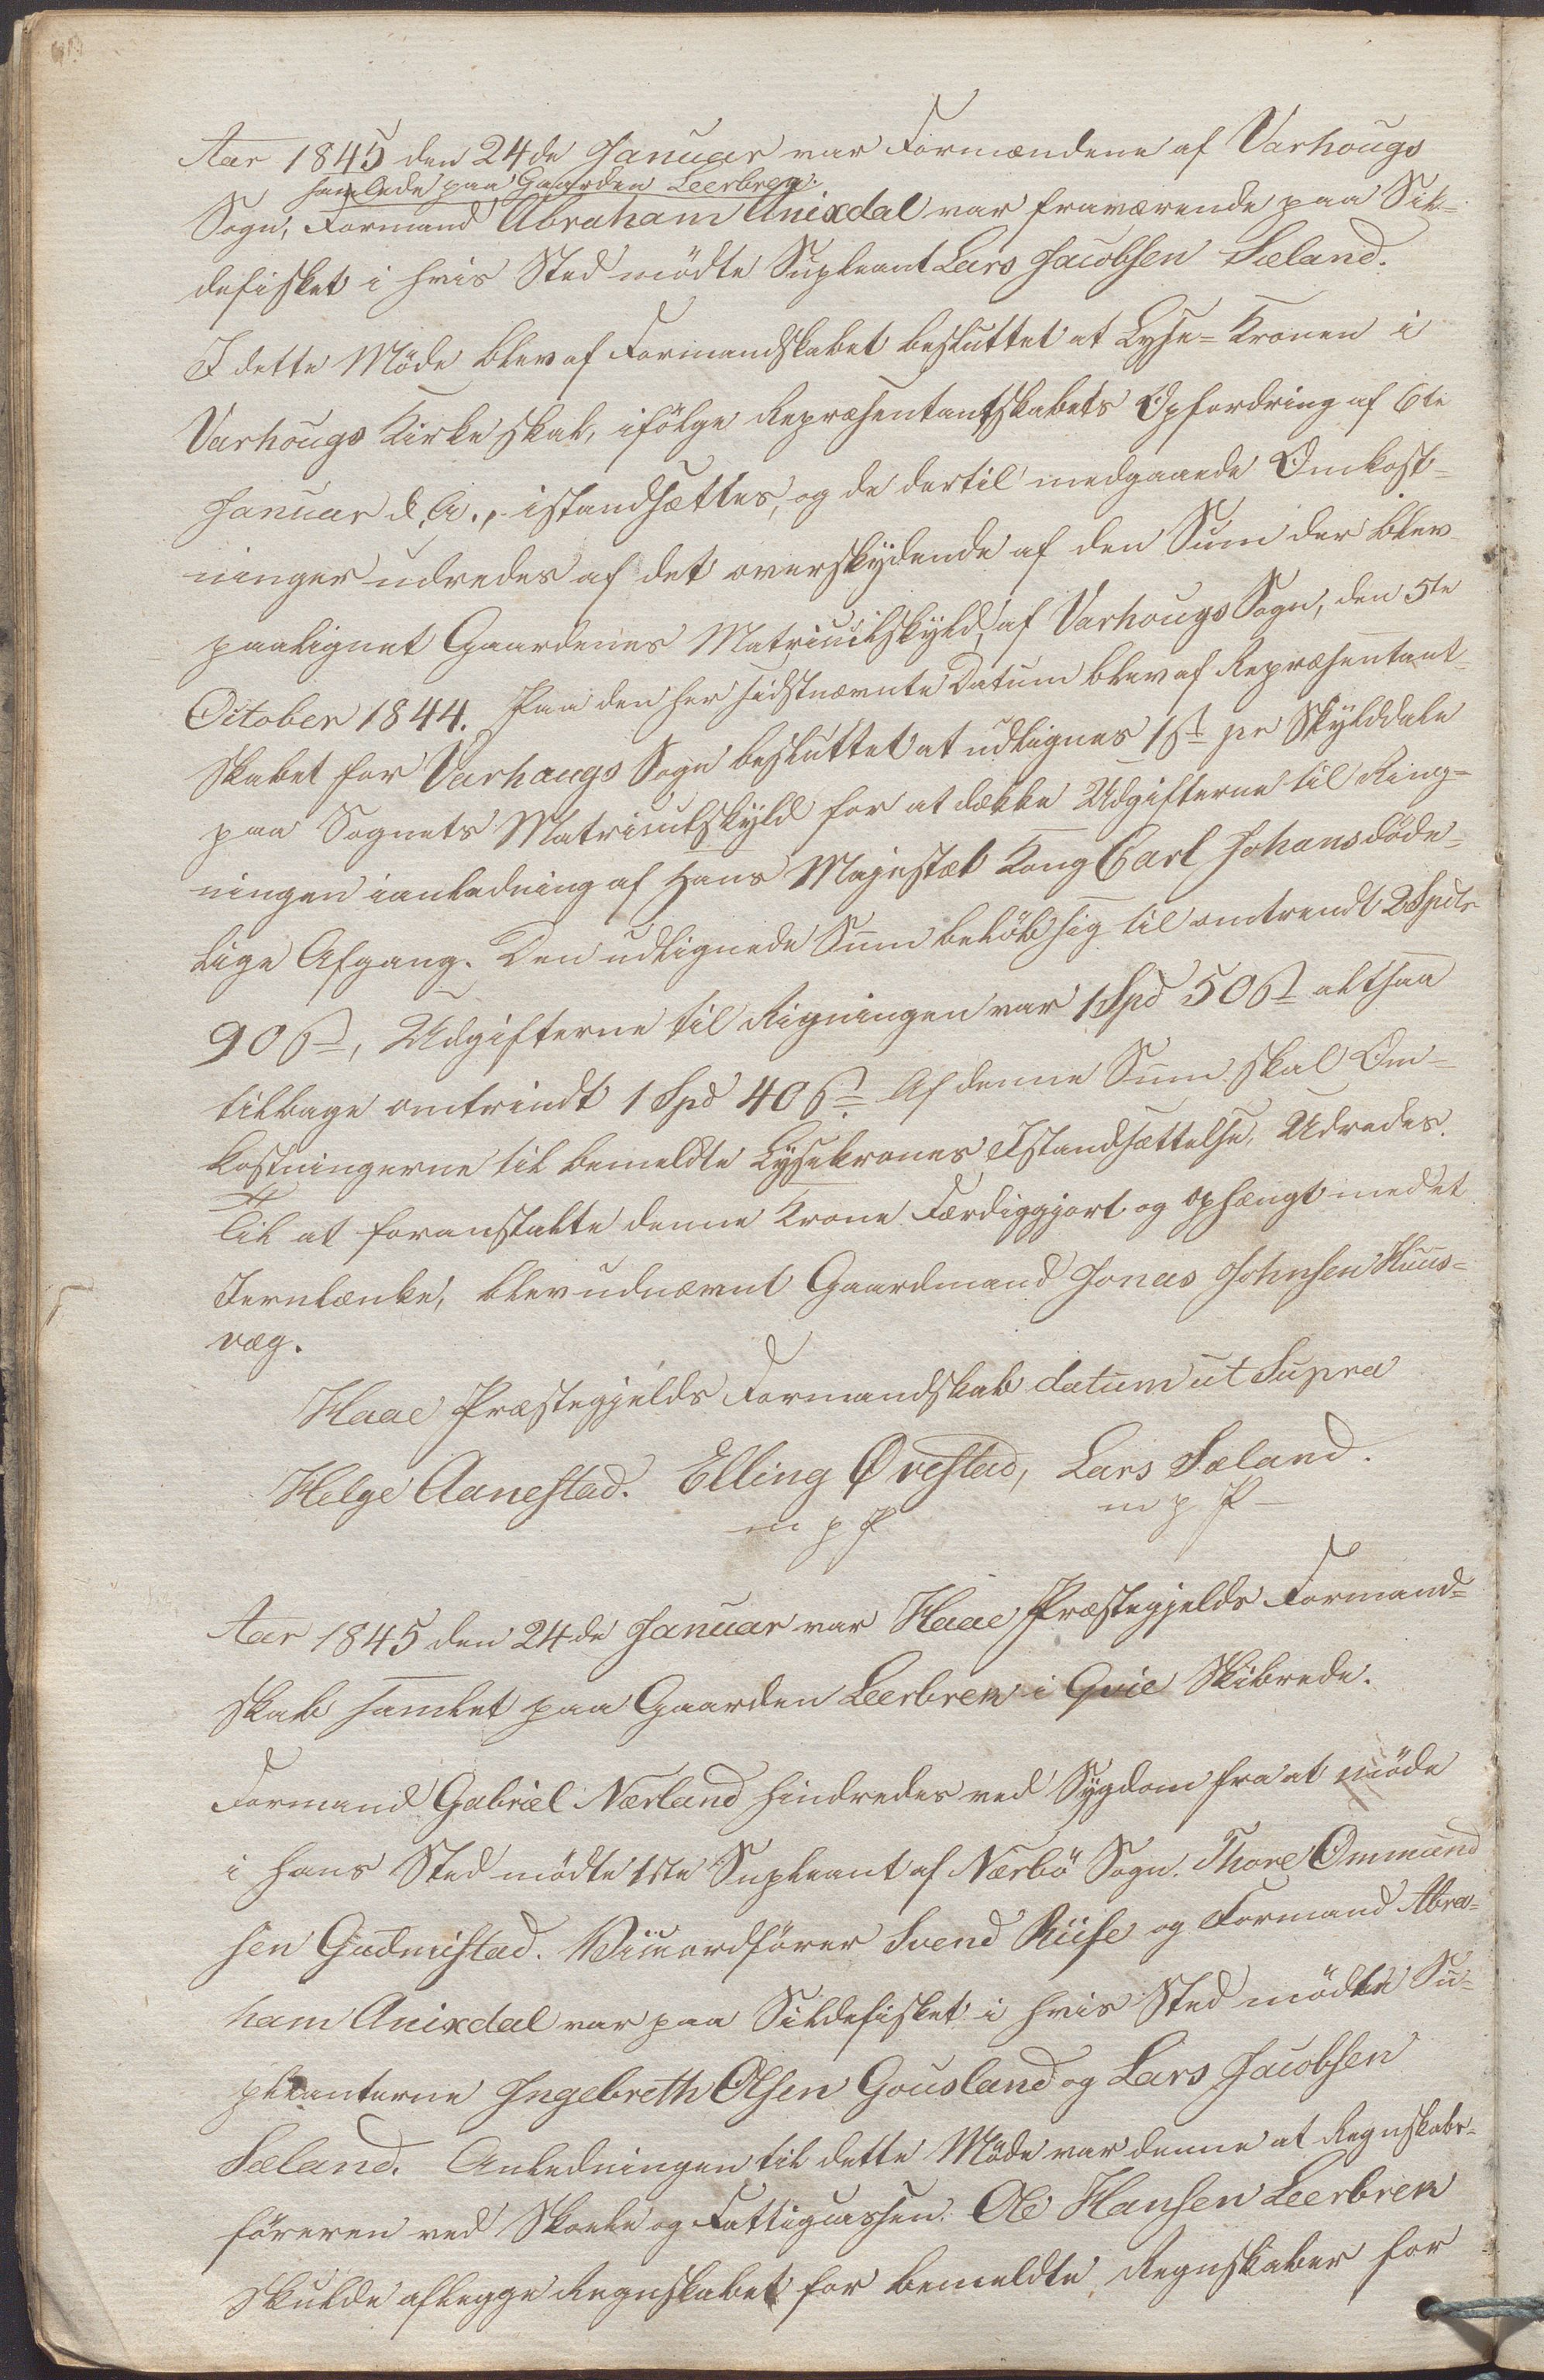 Aar 1845 den 24de Januar var Formændene af Varhougs
samlede paa Gaarden Leerbren.
Sogn, Formand Abraham Anixdal var fraværende paa Sil-
defisket i hvis Sted mödte Supleant Lars Jacobsen Sæland.
I dette Möde blev af Formandskabet besluttet at Lyse-Kronen i
Varhougs Kirke skal, ifölge Repræsentantskabets Opfordring af 6te
Januar d. A., istandsættes, og de dertil medgaaede Omkost-
ninger udredes af det overskydende af den Sum der blev
paalignet Gaardenes Matriculskyld, af Varhougs Sogn, den 5te
October 1844. Paa den her sidstnævnte Datum blev af Repræsentant-
skabet for Varhaugs Sogn besluttet at udlignes 1 ß pr Skylddaler
paa Sognets Matriculskyld for at dække Udgifterne til Ring-
ningen ianledning af Hans Majestæt Kong Carl Johans döde-
lige Afgang. Den udlignede Sum belöb sig til omtrendt 2 Spdlr
90 ß, Udgifterne til Rigningen var 1 Spd 50 ß altsaa
tilbage omtrindt 1 Spd 40 ß. Af denne Sum skal Om-
kostningerne til bemeldte Lysekrones Istandsættelse, Udredes.
Til at foranstalte denne Krone Færdiggjort og ophængt med et
Jernlænke, blev udnævnt Gaardmand Jonas Johnsen Huus-
væg.
Haae Præstegjelds Formandskab datum ut Supra
Helge Aanestad. Elling Ørestad, Lars Sæland.
m p P m p P
Aar 1845 den 24de Januar var Haae Præstegjelds Formand-
skab samlet paa Gaarden Leerbrem i Qvie Skibrede.
Formand Gabriel Nærland hindredes ved Sygdom fra at möde
i hans Sted mödte 1ste Supleant af Nærbö Sogn. Thore Ommund
sen Gudmestad. Viceordförer Svend Riise og Formand Abra-
ham Anixdal var paa Sildefisket i hvis Sted mödte Su-
pleanterne Ingebreth Olsen Gousland og Lars Jacobsen
Sæland. Anledningen til dette Möde var denne at Regnskabs-
föreren ved Skole og Fattigcassen. Ole Hansen Leerbrem
skulde aflegge Regnskabet for bemeldte Regnskaber for